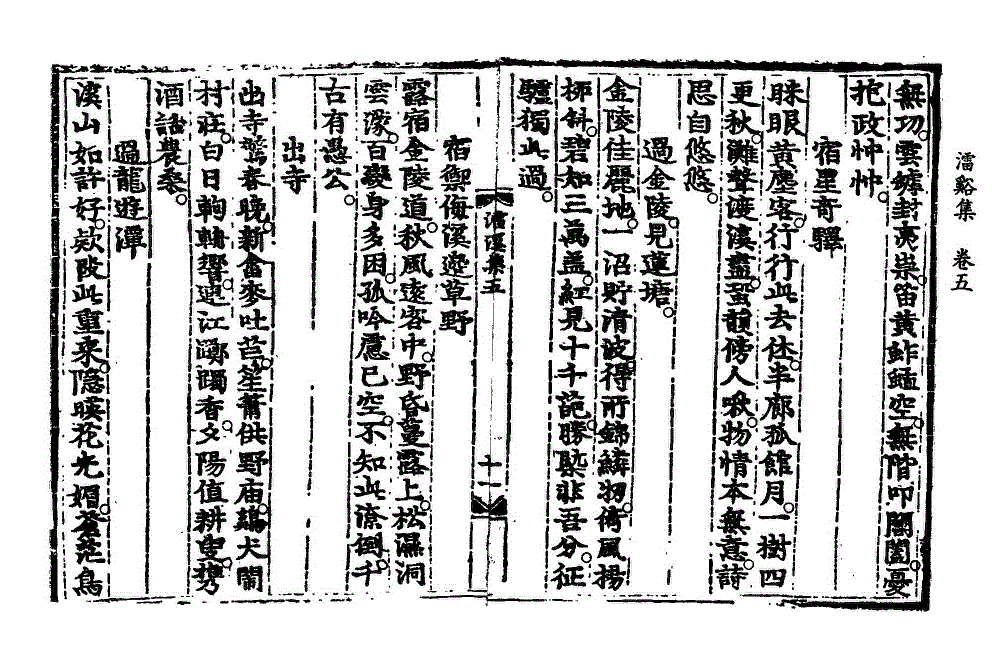 澑谿集 卷五
無功雲罅封夷祟笛黄鮓鰪空無階叩閶闔憂
扢政忡忡
宿星竒驛
眯眼黄塵客行行此去休半廊孤館月一樹四
更秋灘聲渡溪盡蛩韻傍人啾物情本無意詩
思自悠悠
過金陵見蓮塘
金陵佳麗地一沼貯清波得所錦鱗物倚風揚
柳斜碧知三萬蓋紅見十千葩勝槩非吾分征
驢獨此過
澑溪集五
十一
宿禦侮溪邊草野
露宿金陵道秋風遠客中野昏蔓露上松濕洞
雲濛百發身多困孤吟慮已空不知此潦倒千
古有愚公
出寺
出寺驚春晚新畬麥吐芒笙簫供野庙鷄犬閙
村莊白日輈輵響遠江躑躅香夕陽值耕叟携
酒話農桑
過龍遊潭
溪山如許好欵段此重来隱暎花光媚蒼茫鳥